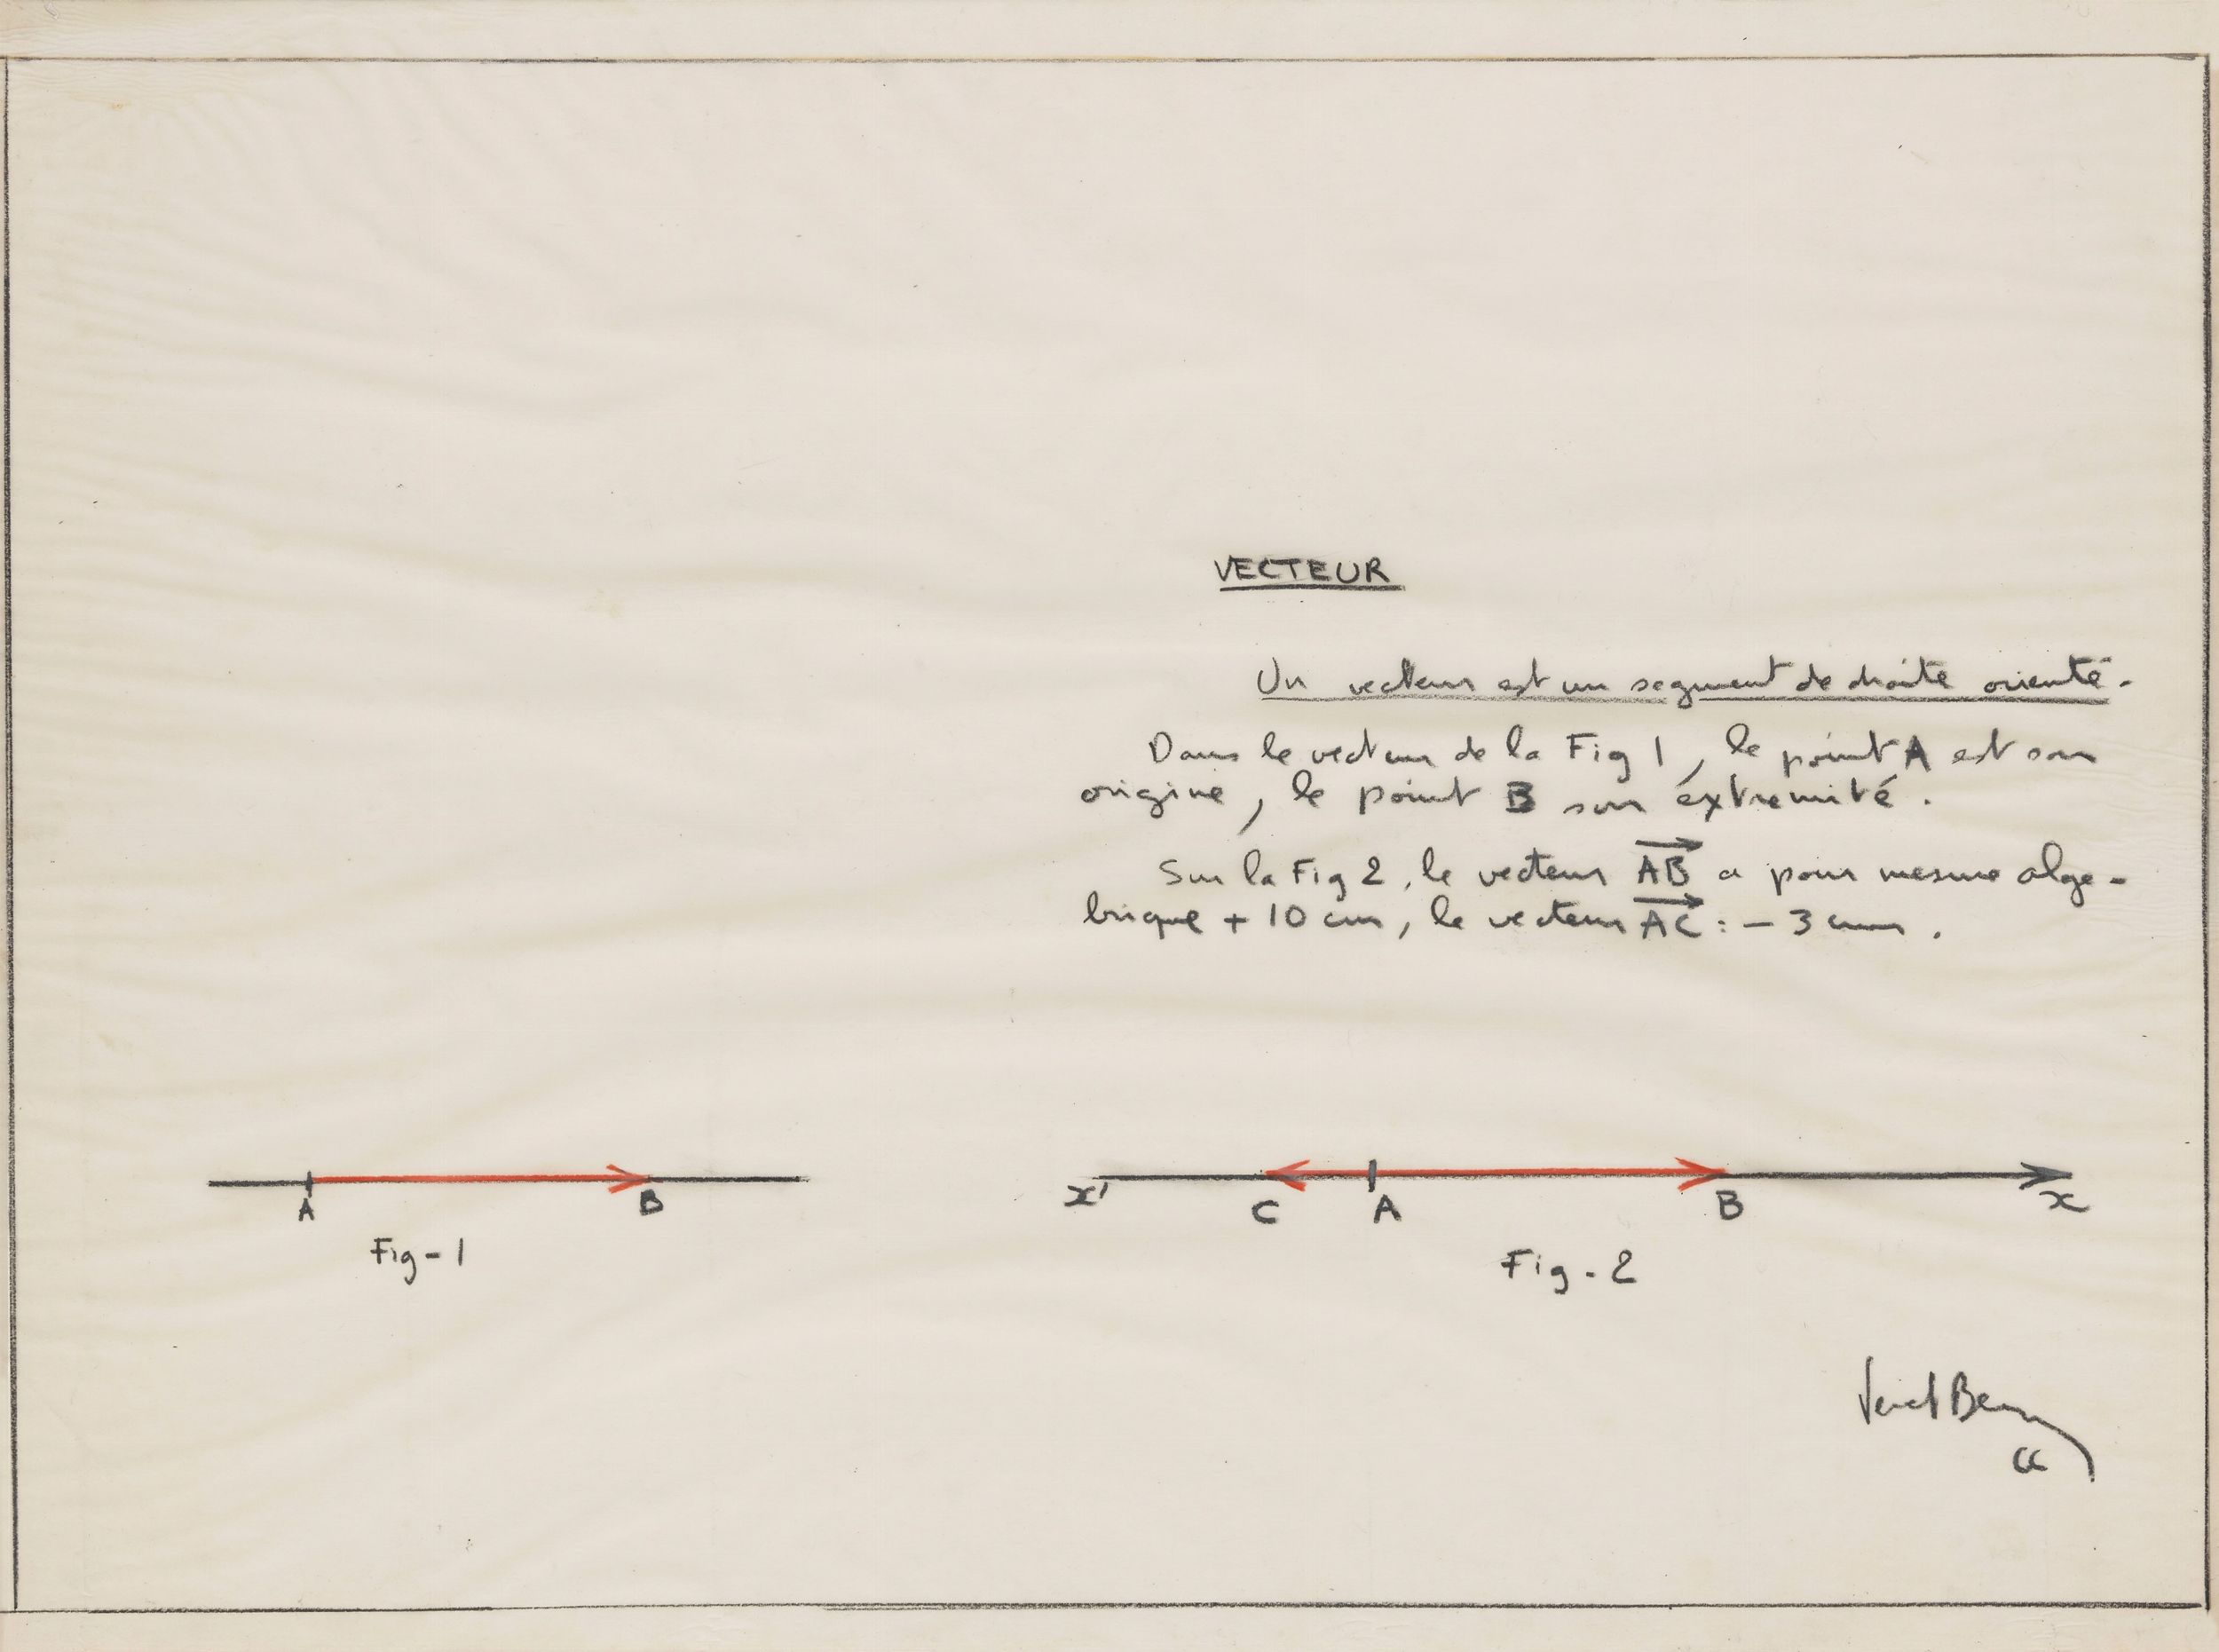 VECTEUR
Un vecteur est un segment de droite orienté.
Dans le vecteur de la Fig 1, le point A est son
origine, le point B son éxtremité.
Sur la Fig 2, le vecteur AB a pour mesure alge-
brique + 10 cm, le vecteur AC : - 3 cm.
A B
Fig-1
x' C A B x
Fig-2